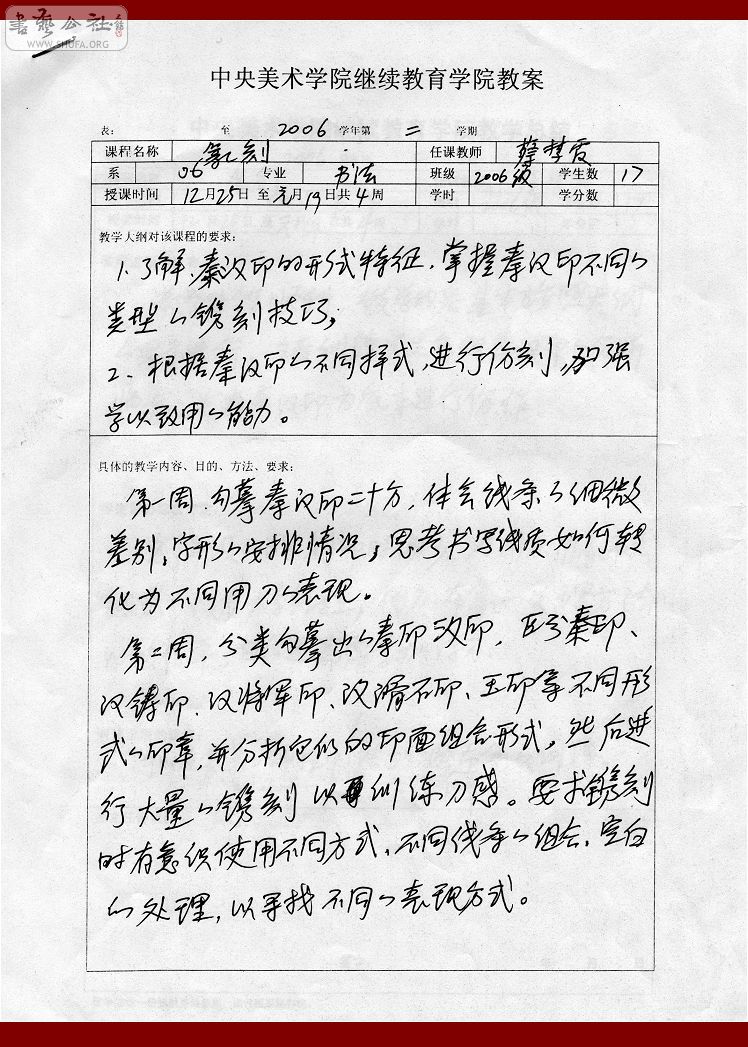 書藝公社
WWW.SHUFA.ORG
中央美术学院继续教育学院教案
表: 至 2006 学年第 二 学期
课程名称 篆刻 任课教师 蔡梦霞
系 06 专业 书法 班级 2006级 学生数 17
授课时间 12月25日 至 元月19日共4周 学时 学分数
教学大纲对该课程的要求:
1、了解、秦汉印的形式特征,掌握秦汉印不同的
类型的镌刻技巧;
2、根据秦汉印的不同样式,进行仿刻,加强
学以致用的能力。
具体的教学内容、目的、方法、要求:
第一周,勾摹秦汉印二十方,体会线条的细微
差别,字形的安排情况,思考书写线质如何转
化为不同用刀的表现。
第二周,分类勾摹出的秦印汉印,区分秦印、
汉铸印、汉将军印、汉滑石印、玉印等不同形
式的印章,并分析它们的印面组合形式,然后进
行大量的镌刻以训练刀感。要求镌刻
时有意识使用不同方式,不同线条的组合,空白
的处理,以寻找不同的表现方式。